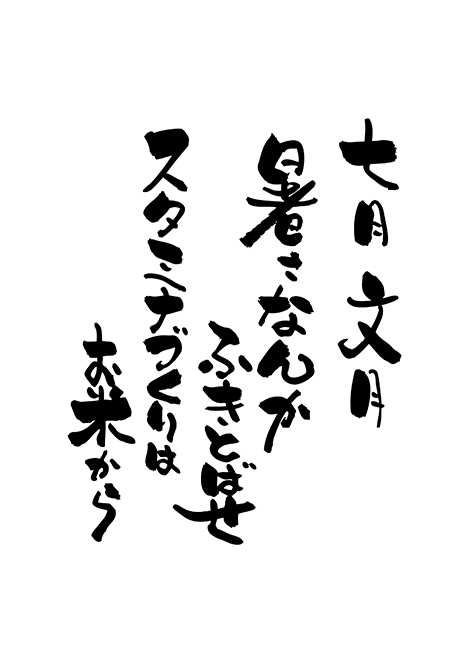 七月 文月
暑さなんか
ふきとばせ
スタミナづくりは
お米から